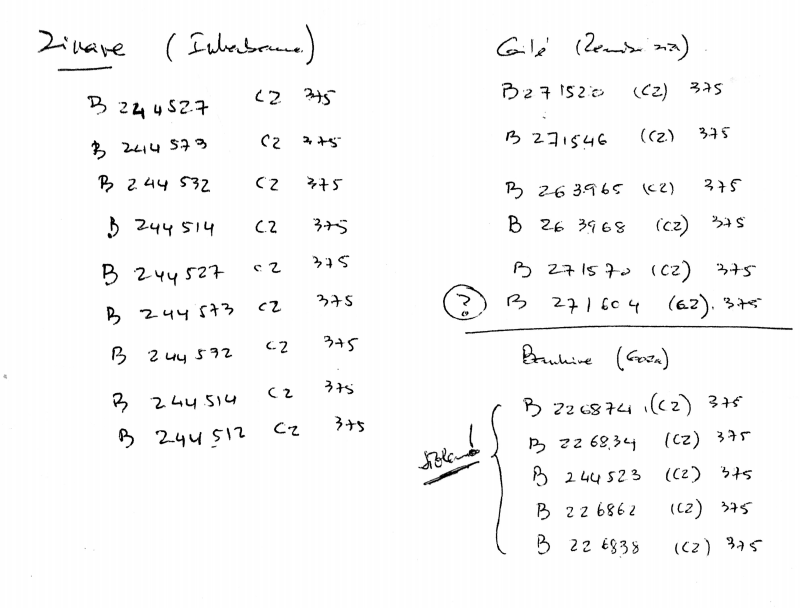 Zinave (Inhambane)
B 244527 CZ 375
B 244573 CZ 375
B 244532 CZ 375
B 244514 CZ 375
B 244527 CZ 375
B 244573 CZ 375
B 244532 CZ 375
B 244514 CZ 375
B 244512 CZ 375
B 271520 (CZ) 375
B 271546 (CZ) 375
B 263965 (CZ) 375
B 263968 (CZ) 375
B 271570 (CZ) 375
? B 271604 (CZ). 375
Banhine (Gaza)
B 226874 (CZ) 375
B 226834 (CZ) 375
B 244523 (CZ) 375
B 226862 (CZ) 375
B 226838 (CZ) 375
stolen!